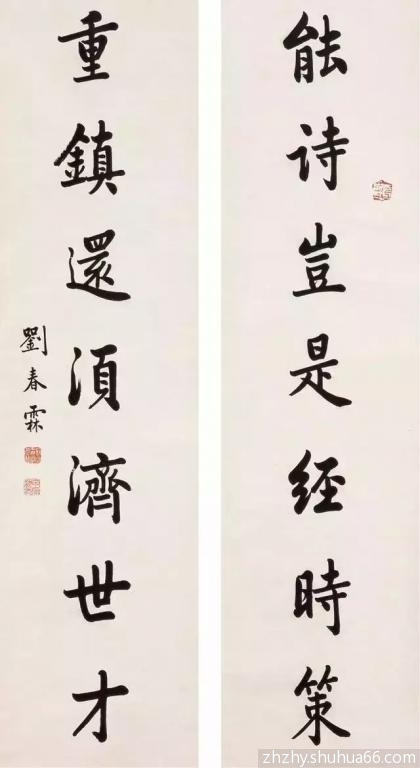 能詩豈是經時策
重鎮還須濟世才
劉春霖
zhzhy.shuhua66.com